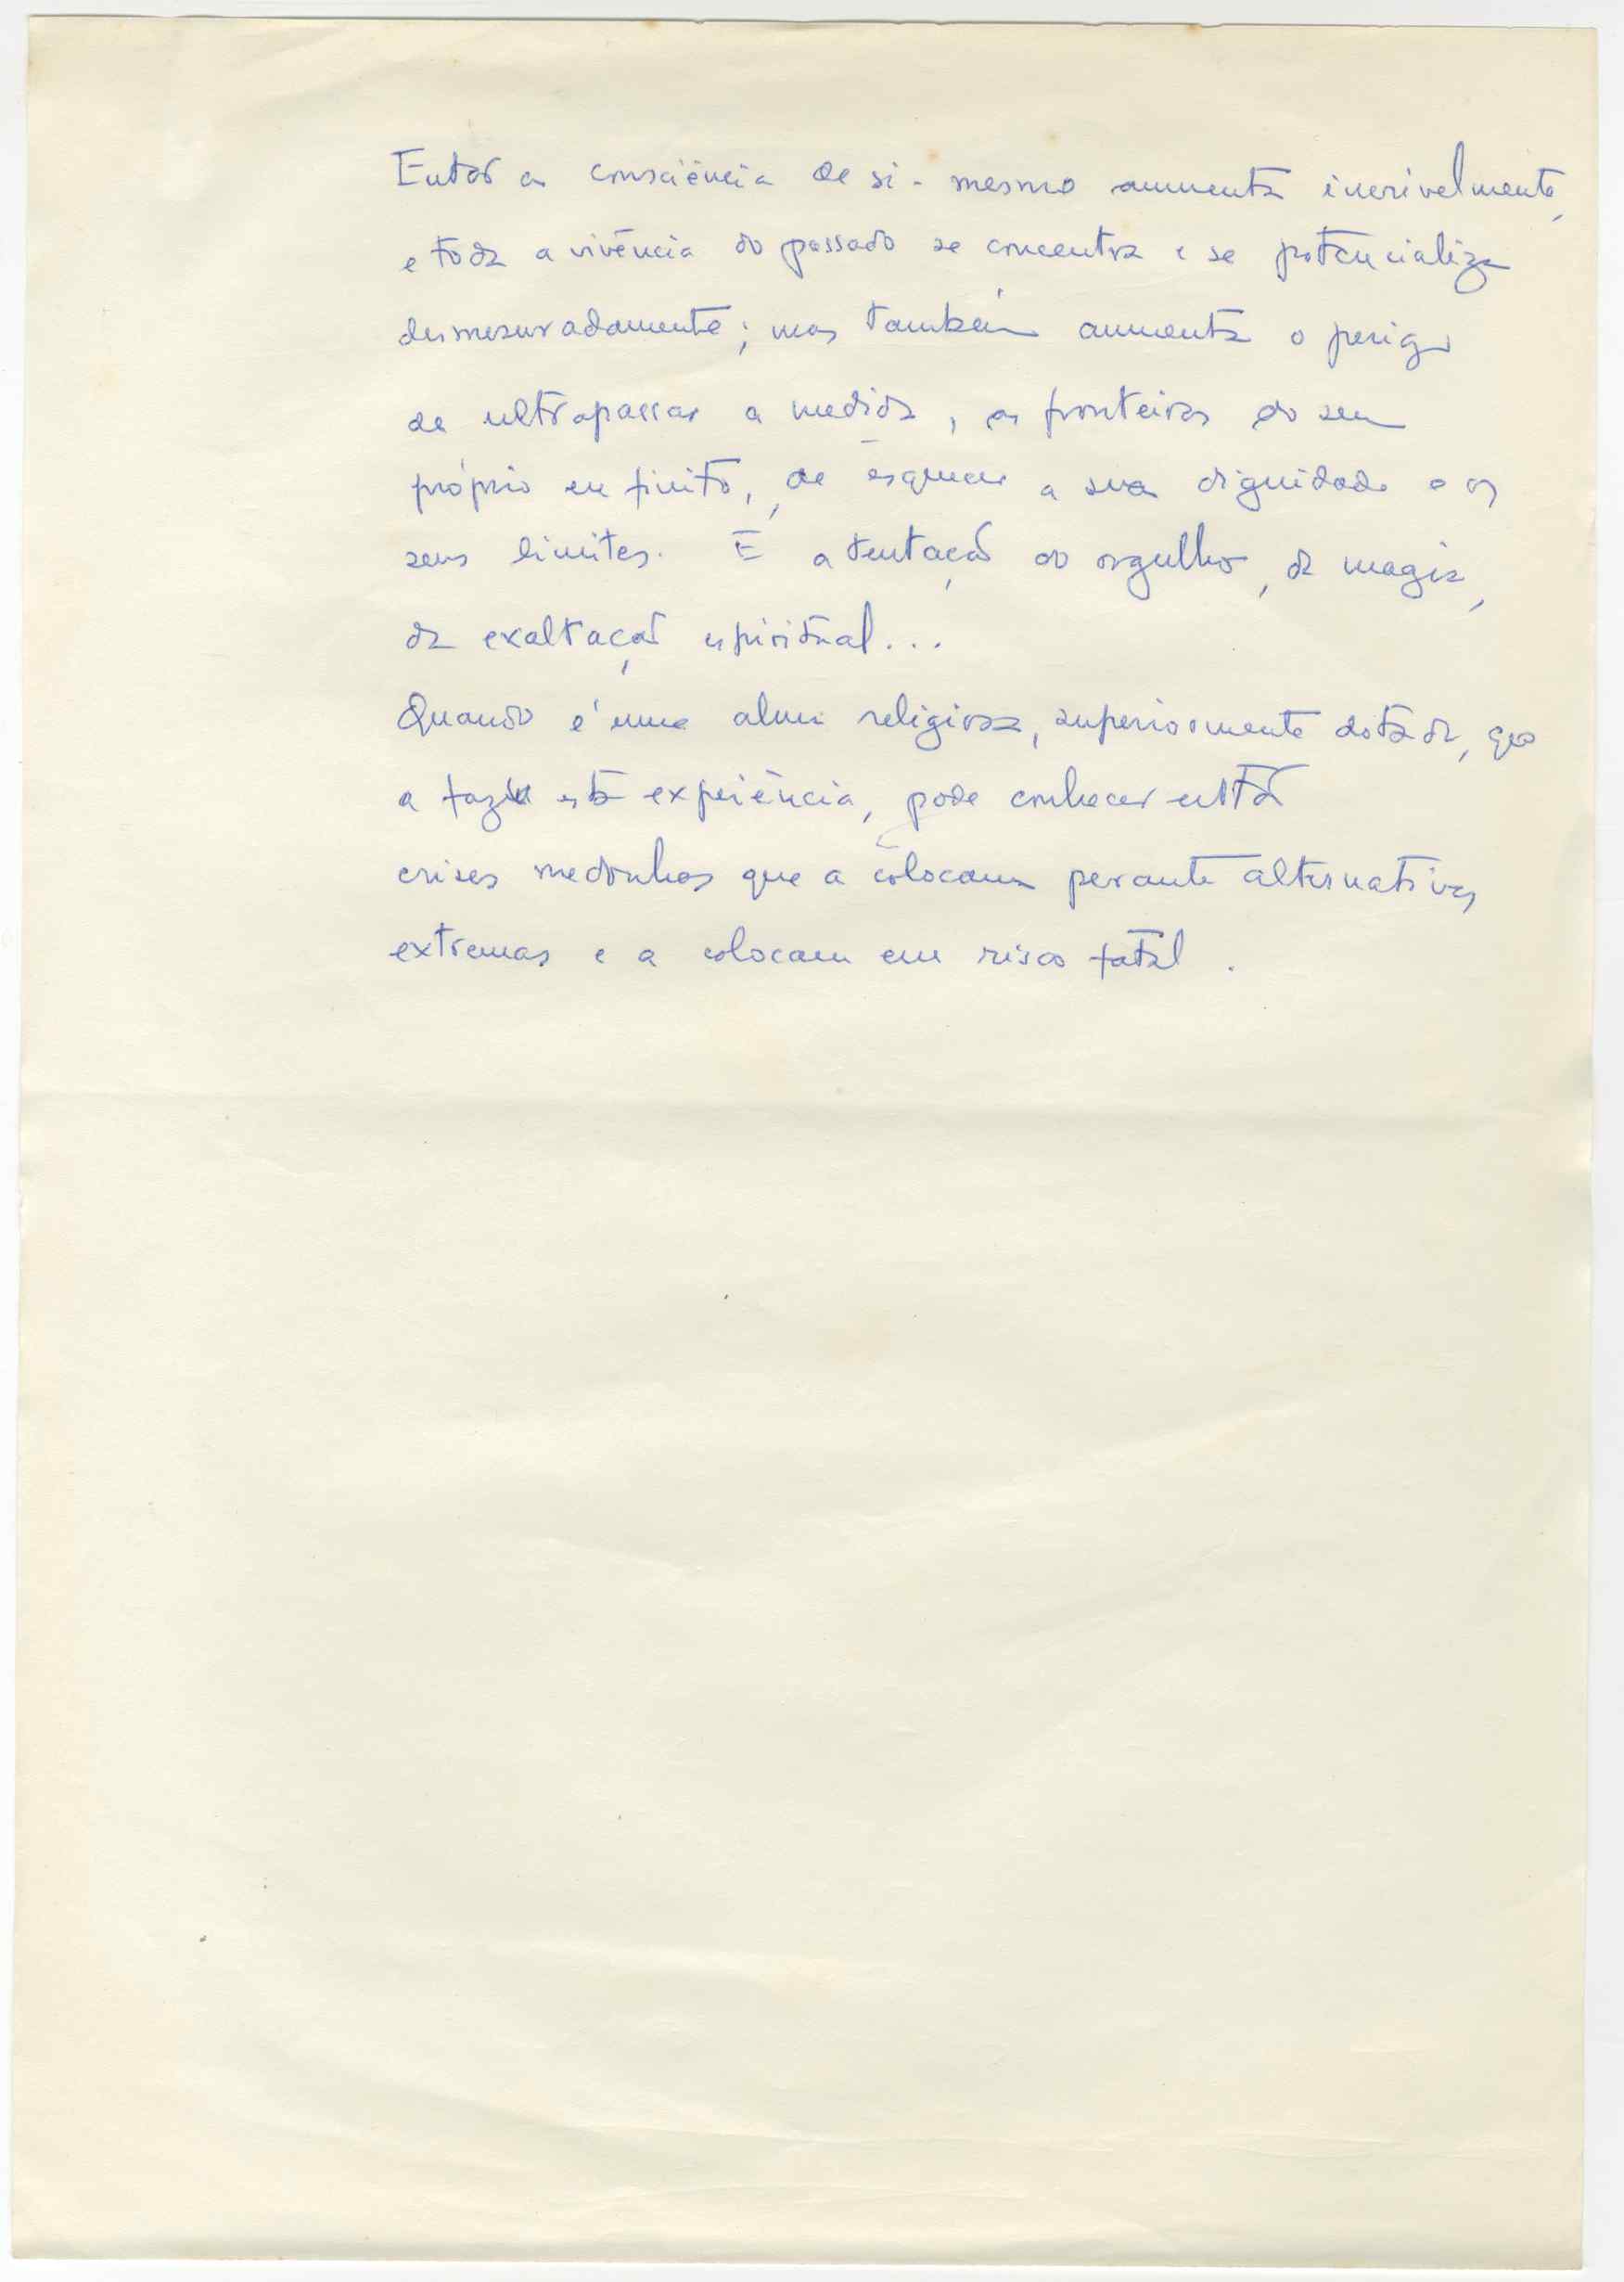 Então a consciência de si-mesmo aumenta incrivelmente,
e toda a vivência do passado se concentra e se potencializa
desmesuradamente; mas também aumenta o perigo
de ultrapassar a medida, as fronteiras do seu
próprio eu finito, de esquecer a sua dignidade e os
seus limites. É a tentação do orgulho, da magia,
da exaltação espiritual...
Quando é uma alma religiosa, superiormente dotada, que
a fazer esta experiência, pode conhecer então
crises medonhas que a colocam perante alternativas
extremas e a colocam em risco fatal.